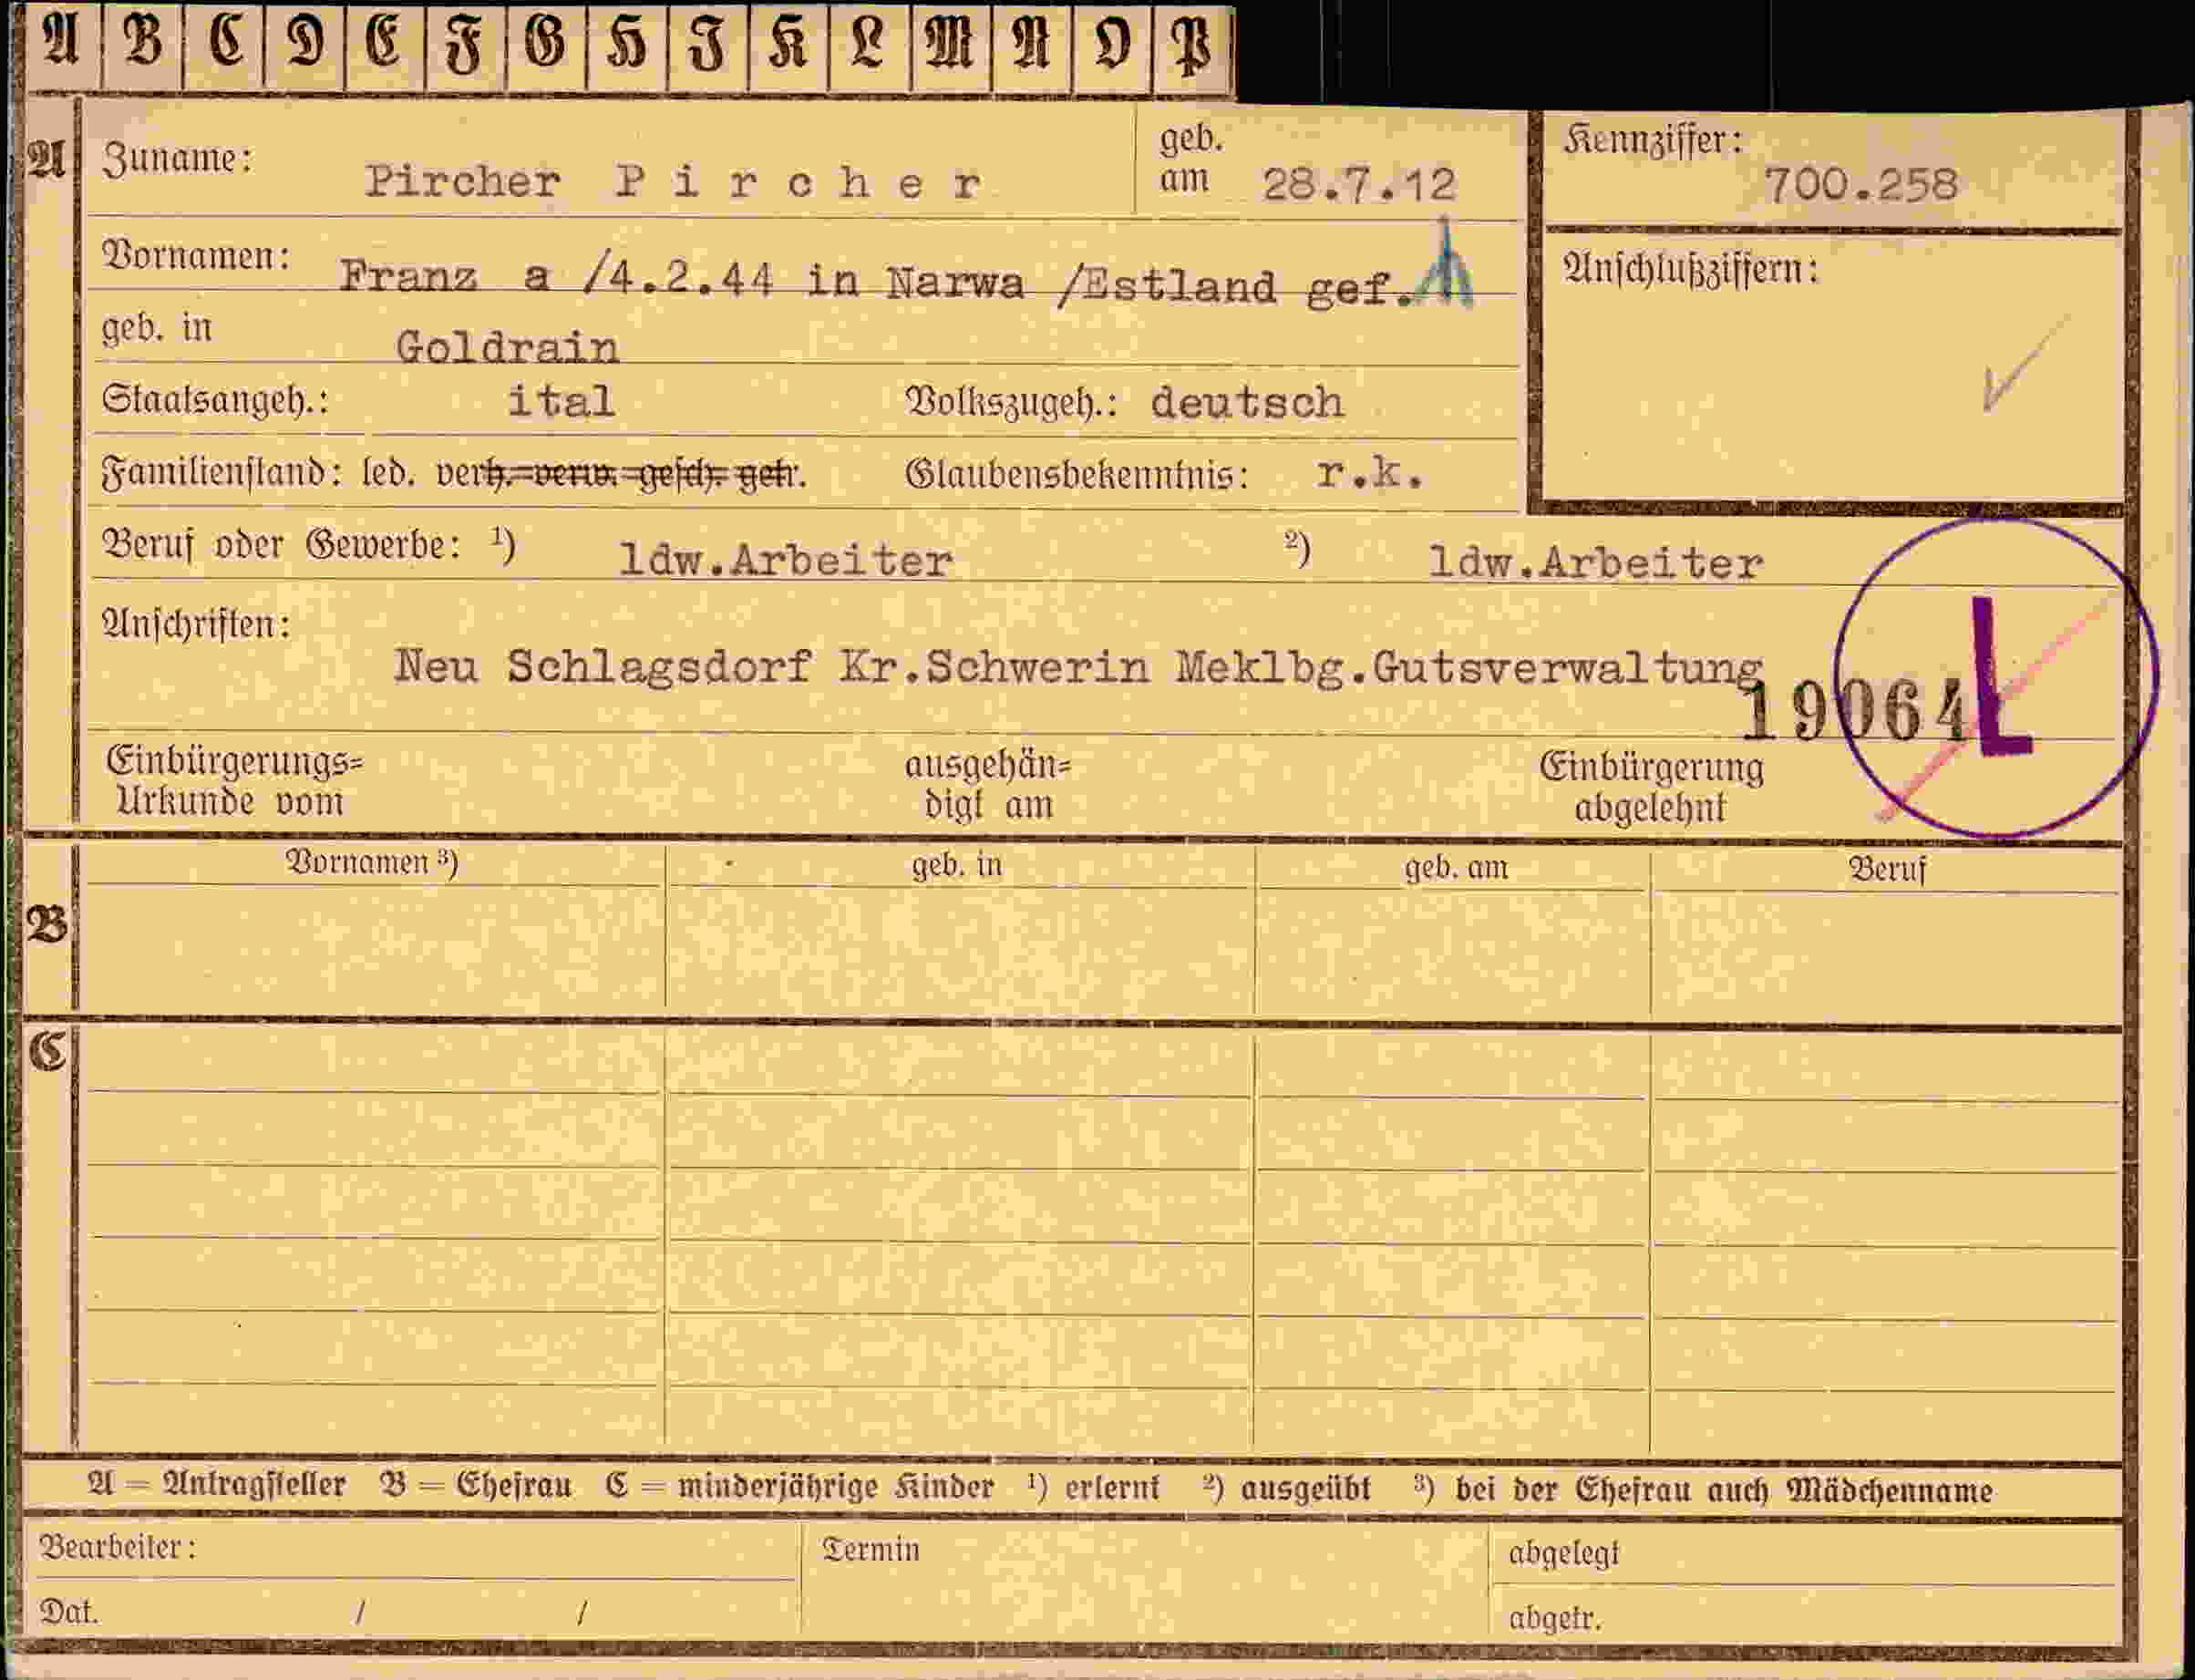 A B C D E F G H I K L M N O P
A Zuname: Pircher P i r c h e r geb. am 28.7.12 Kennziffer: 700.258
Vornamen: Franz a /4.2.44 in Narwa /Estland gef. Anschlußziffern:
geb. in Goldrain
Staatsangeh.: ital Volkszugeh.: deutsch
Familienstand: led. verh. verw. gesch. getr. Glaubensbekenntnis: r.k.
Beruf oder Gewerbe: ¹) ldw.Arbeiter ²) ldw.Arbeiter
Anschriften:
Neu Schlagsdorf Kr.Schwerin Meklbg.Gutsverwaltung
19064 L
Einbürgerungs= ausgehän= Einbürgerung
Urkunde vom digt am abgelehnt
Vornamen ³) geb. in geb. am Beruf
B
C
A = Antragsteller B = Ehefrau C = minderjährige Kinder ¹) erlernt ²) ausgeübt ³) bei der Ehefrau auch Mädchenname
Bearbeiter: Termin abgelegt
Dat. / / abgetr.